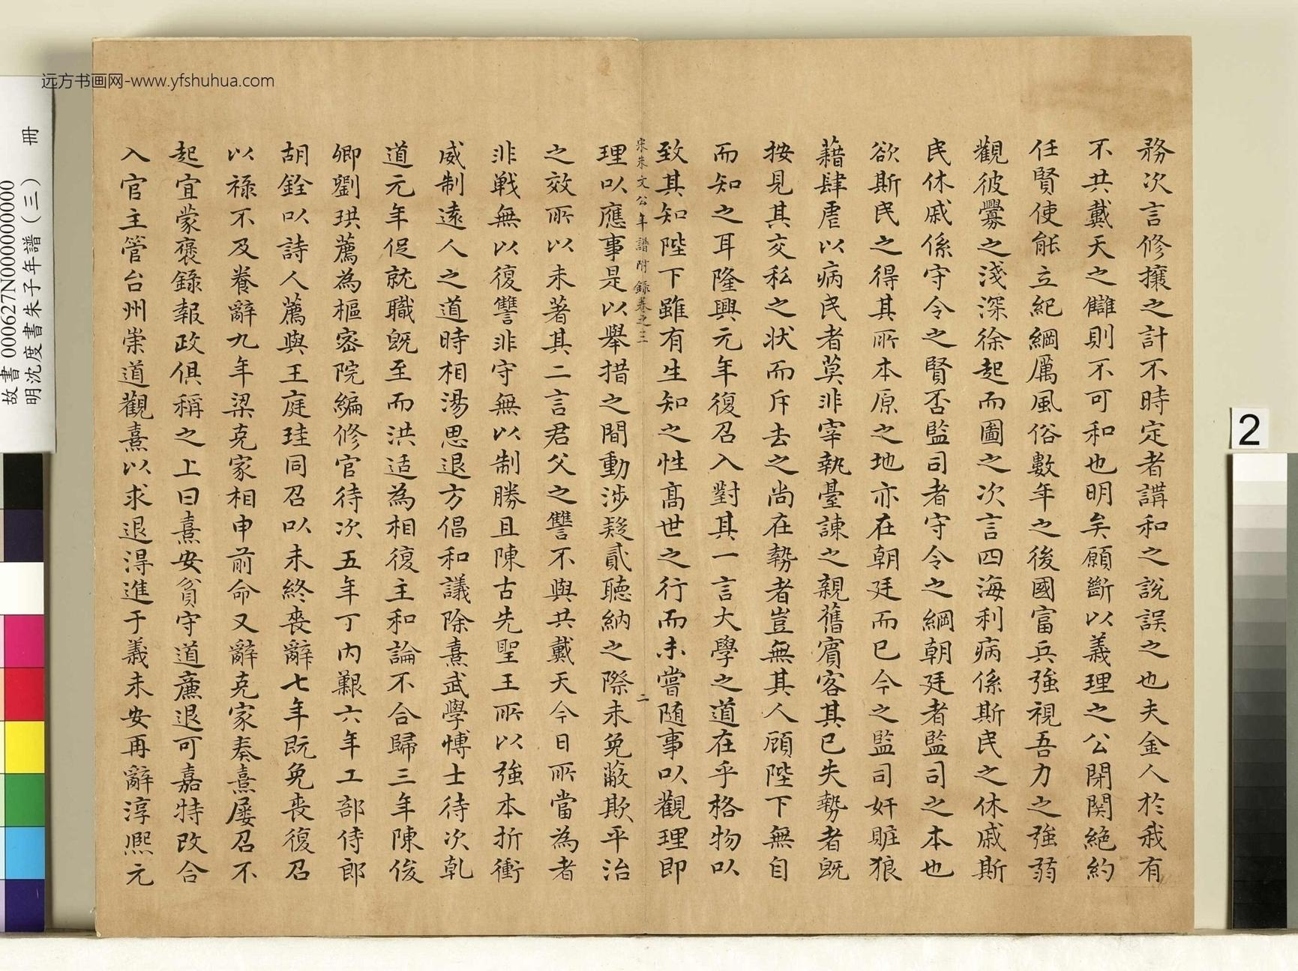 远方书画网-www.yfshuhua.com
務次言修攘之計不時定者講和之說誤之也夫金人於我有
不共戴天之讎則不可和也明矣願斷以義理之公閉關絕約
任賢使能立紀綱厲風俗數年之後國富兵強視吾力之強弱
觀彼釁之淺深徐起而圖之次言四海利病係斯民之休戚斯
民休戚係守令之賢否監司者守令之綱朝廷者監司之本也
欲斯民之得其所本原之地亦在朝廷而已今之監司奸賍狼
藉肆虐以病民者莫非宰執臺諫之親舊賓客其已失勢者既
按見其交私之状而斥去之尚在勢者豈無其人顧陛下無自
而知之耳隆興元年復召入對其一言大學之道在乎格物以
致其知陛下雖有生知之性高世之行而未嘗随事以觀理即
宋朱文公年譜附錄卷之三
二
理以應事是以舉措之間動涉疑貳聽納之際未免蔽欺平治
之效所以未著其二言君父之讐不與共戴天今日所當為者
非戰無以復讐非守無以制勝且陳古先聖王所以強本折衝
威制遠人之道時相湯思退方倡和議除熹武學博士待次乾
道元年促就職既至而洪适為相復主和論不合歸三年陳俊
卿劉珙薦為樞密院編修官待次五年丁內艱六年工部侍郎
胡銓以詩人薦與王庭珪同召以未終喪辭七年既免喪復召
以祿不及養辭九年梁克家相申前命又辭克家奏熹屢召不
起宜蒙褒錄執政俱稱之上曰熹安貧守道廉退可嘉特改合
入官主管台州崇道觀熹以求退得進于義未安再辭淳熙元
冊
故書 000627N000000000
明沈度書朱子年譜(三)
2